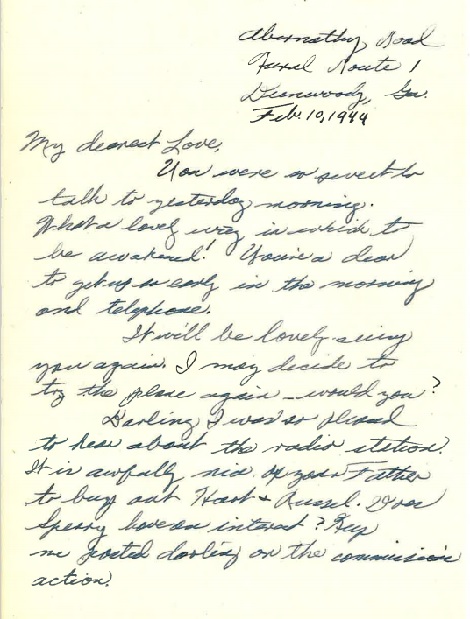 Abernathy Road
Rural Route 1
Dunwoody, Ga.
Feb. 10, 1949
My dearest Love,
You were so sweet to
talk to yesterday morning.
What a lovely way in which to
be awakened! You're a dear
to get up so early in the morning
and telephone.
It will be lovely seeing
you again. I may decide to
try the plane again - would you?
Darling I was so pleased
to hear about the radio station.
It is awfully nice of your Father
to buy out Hoot + Russel. Does
Sperry have an interest? Keep
me posted darling on the commission's
action.